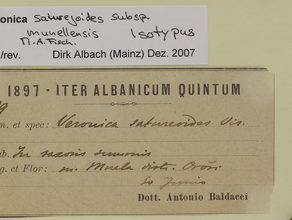 onica saturejoides subsp.
munellensis Isotypus
M.A. Fisch.
/rev. Dirk Albach (Mainz) Dez. 2007
1897 - ITER ALBANICUM QUINTUM
9
n. et spec: Veronica satureoides Vis.
ab. In saxosis summis
g. et Flor: m. Munela distr. Oroši
20 Junio
Dott. Antonio Baldacci